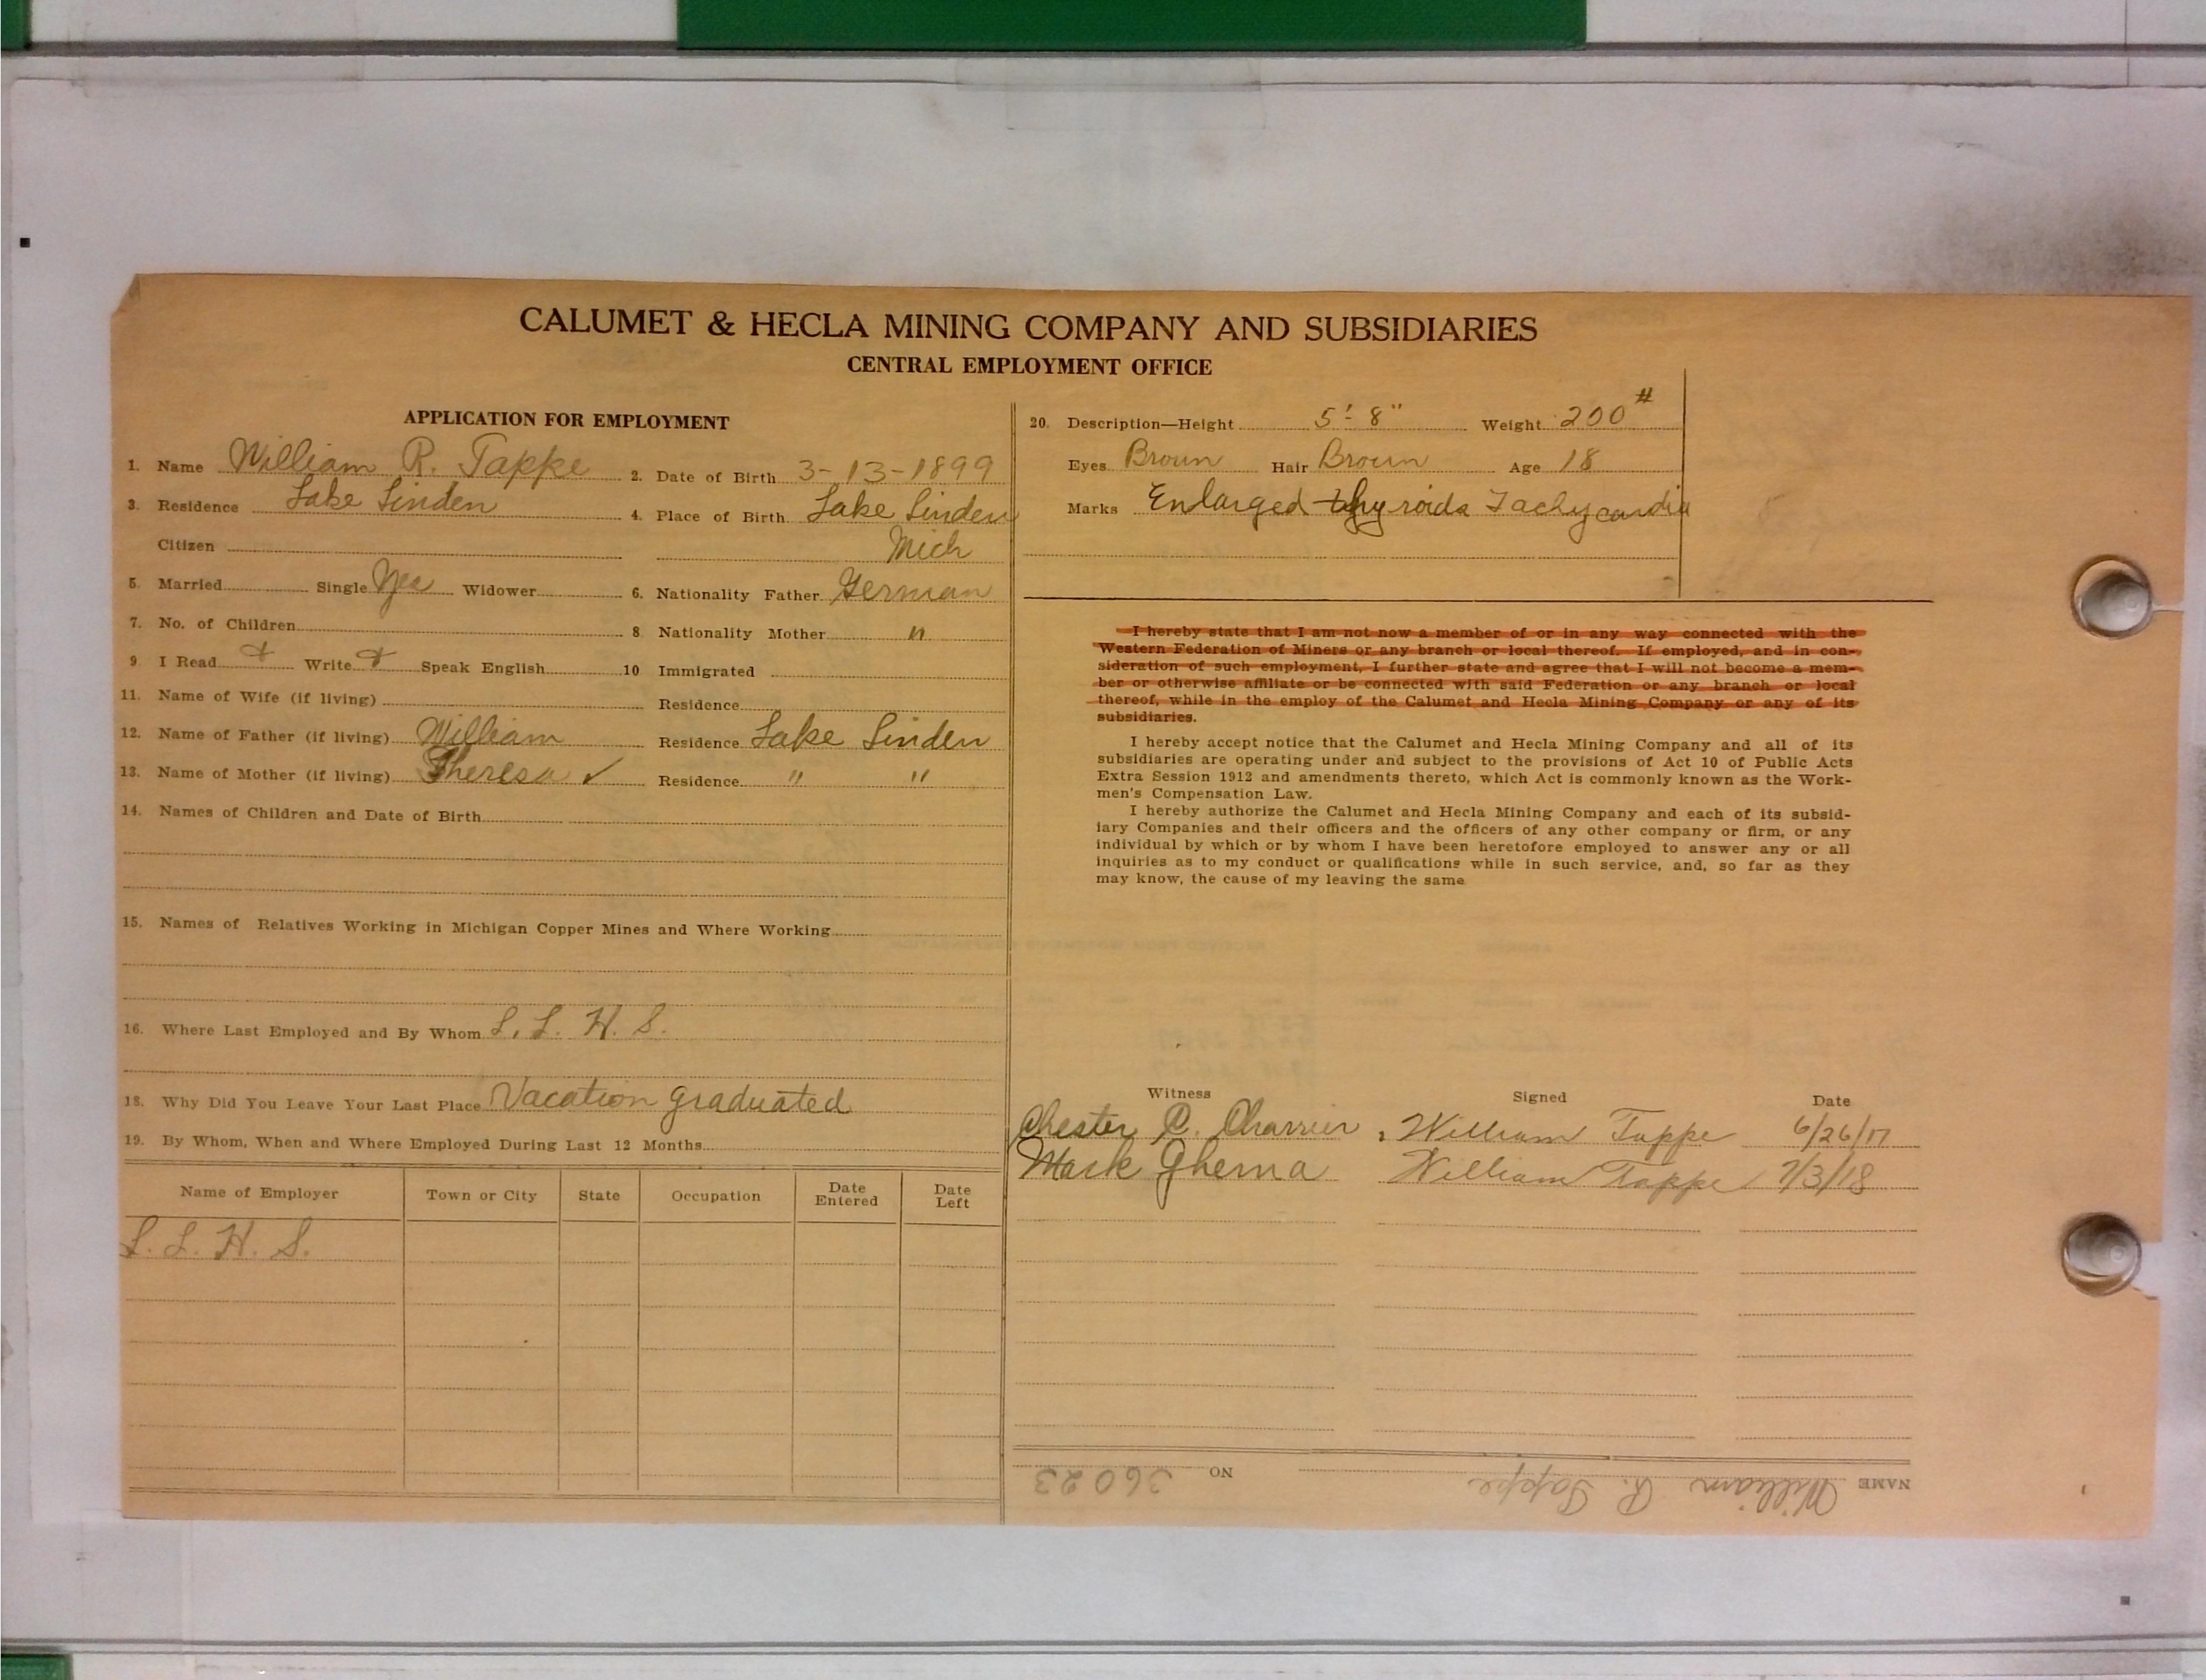 CALUMET & HECLA MINING COMPANY AND SUBSIDIARIES
CENTRAL EMPLOYMENT OFFICE
APPLICATION FOR EMPLOYMENT
1. Name William R. Tappe 2. Date of Birth 3-13-1899
3. Residence Lake Linden 4. Place of Birth Lake Linden
Citizen Mich
5. Married Single Yes Widower 6. Nationality Father German
7. No. of Children 8 Nationality Mother "
9 I Read + Write + Speak English 10 Immigrated
11. Name of Wife (if living) Residence
12. Name of Father (if living) William Residence Lake Linden
13. Name of Mother (if living) Theresa ✓ Residence " "
14. Names of Children and Date of Birth
15. Names of Relatives Working in Michigan Copper Mines and Where Working
16. Where Last Employed and By Whom L. L. H. S.
18. Why Did You Leave Your Last Place Vacation graduated
19. By Whom, When and Where Employed During Last 12 Months
Name of Employer Town or City State Occupation Date Entered Date Left
L. L. H. S.
20. Description—Height 5'-8" Weight 200#
Eyes Broun Hair Broun Age 18
Marks Enlarged thyroids Tachycardia
I hereby state that I am not now a member of or in any way connected with the
Western Federation of Miners or any branch or local thereof. If employed, and in con-
sideration of such employment, I further state and agree that I will not become a mem-
ber or otherwise affiliate or be connected with said Federation or any branch or local
thereof, while in the employ of the Calumet and Hecla Mining Company or any of its
subsidiaries.
I hereby accept notice that the Calumet and Hecla Mining Company and all of its
subsidiaries are operating under and subject to the provisions of Act 10 of Public Acts
Extra Session 1912 and amendments thereto, which Act is commonly known as the Work-
men's Compensation Law.
I hereby authorize the Calumet and Hecla Mining Company and each of its subsid-
iary Companies and their officers and the officers of any other company or firm, or any
individual by which or by whom I have been heretofore employed to answer any or all
inquiries as to my conduct or qualifications while in such service, and, so far as they
may know, the cause of my leaving the same
Witness Signed Date
Chester C. Charrier William Tappe 6/26/17
Mark Ghema William Tappe 7/3/18
NAME William R. Tappe NO 36023